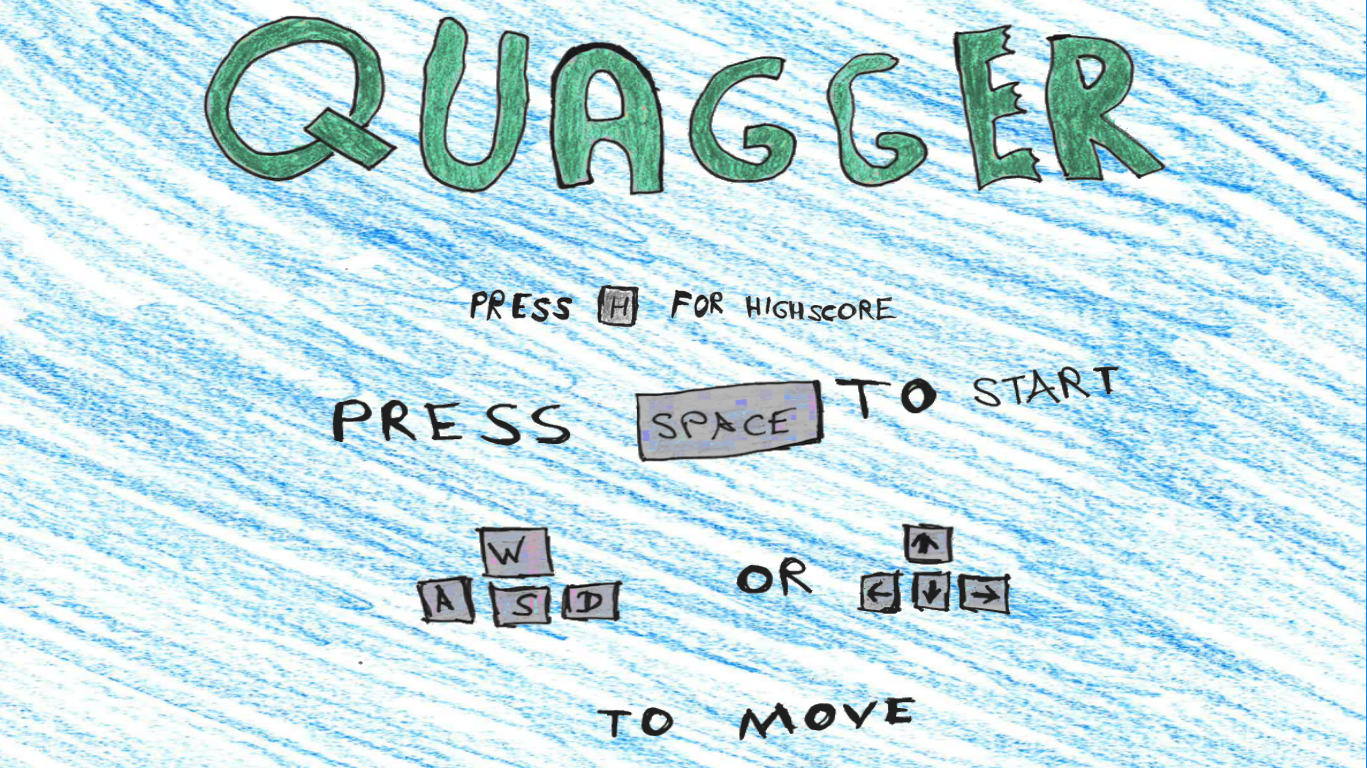 QUAGGER
PRESS H FOR HIGHSCORE
PRESS SPACE TO START
W
A S D OR ↑
← ↓ →
TO MOVE